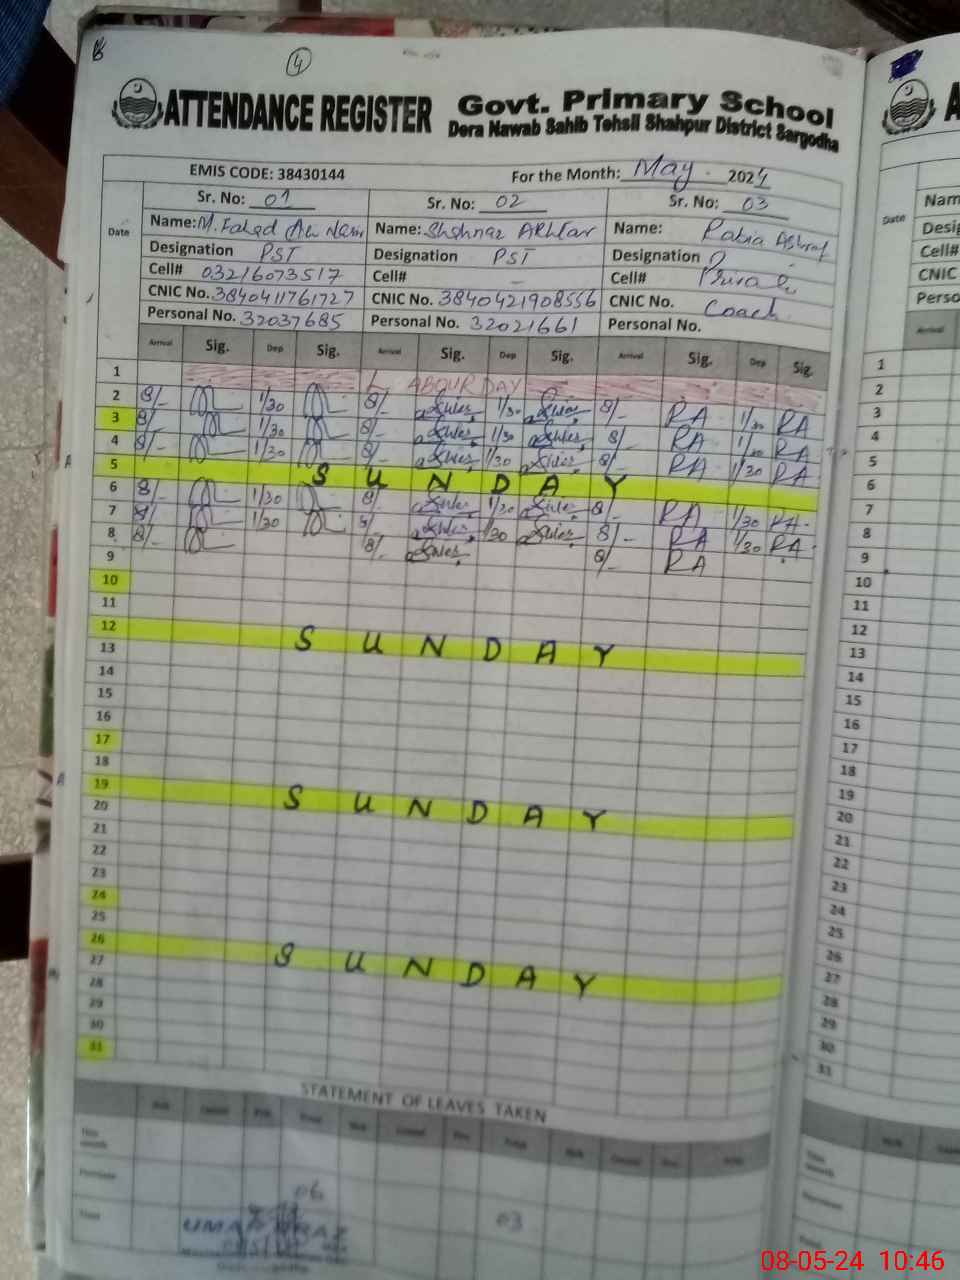 4
ATTENDANCE REGISTER Govt. Primary School
Dera Nawab Sahib Tehsil Shahpur District Sargodha
EMIS CODE: 38430144 For the Month: May 2024
Sr. No: 01 Sr. No: 02 Sr. No: 03
Date
Name: M. Fahad Name: Shahnaz Akhtar Name: Rabia Ashraf
Designation PST Designation PST Designation
Cell# 03216073517 Cell# - Cell# Private
CNIC No. 3840411761727 CNIC No. 3840421908556 CNIC No. Coach
Personal No. 32037685 Personal No. 32021661 Personal No.
Arrival Sig. Dep Sig. Arrival Sig. Dep Sig. Arrival Sig. Dep Sig.
1 LABOUR DAY
2 8/- 1/30 8/- 1/30 8/- RA 1/30 RA
3 8/- 1/30 8/- 1/30 8/- RA 1/30 RA
4 8/- 1/30 8/- 1/30 8/- RA 1/30 RA
5 SUNDAY
6 8/- 1/30 8/- 1/30 8/- RA 1/30 RA
7 8/- 1/30 8/- 1/30 8/- RA 1/30 RA
8 8/- 8/- 8/- RA
9
10
11
12 SUNDAY
13
14
15
16
17
18
19 SUNDAY
20
21
22
23
24
25
26 SUNDAY
27
28
29
30
31
STATEMENT OF LEAVES TAKEN
06
03
Date
Nam
Desig
Cell#
CNIC
Perso
1
2
3
4
5
6
7
8
9
10
11
12
13
14
15
16
17
18
19
20
21
22
23
24
25
26
27
28
29
30
31
08-05-24 10:46